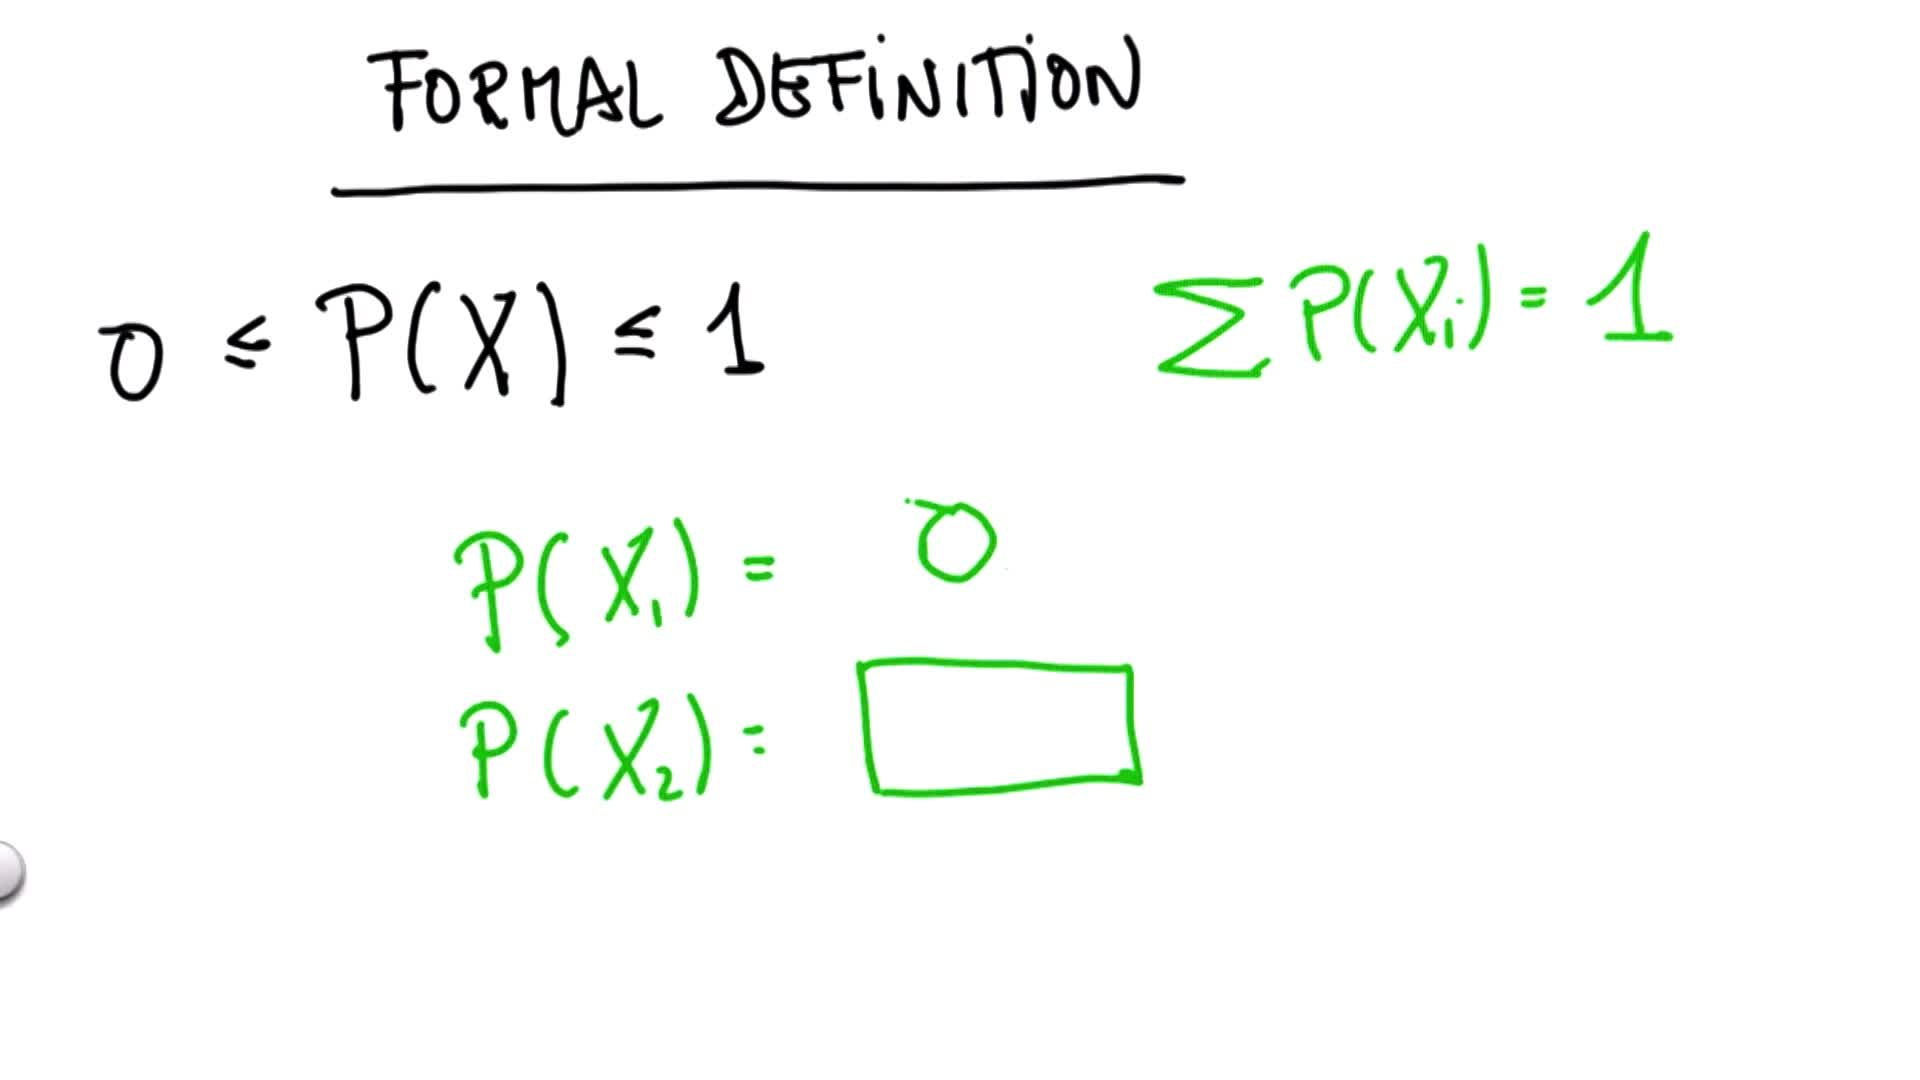 FORMAL DEFINITION
0 ≤ P(X) ≤ 1
∑ P(Xi) = 1
P(X₁) = 0
P(X₂) =